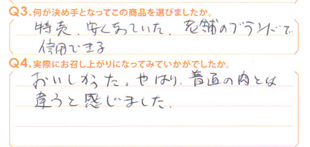 Q3.何が決め手となってこの商品を選びましたか。
特売、安くなっていた、老舗のブランドで
信用できる
Q4.実際にお召し上がりになってみていかがでしたか。
おいしかった。やはり、普通の肉とは
違うと感じました。